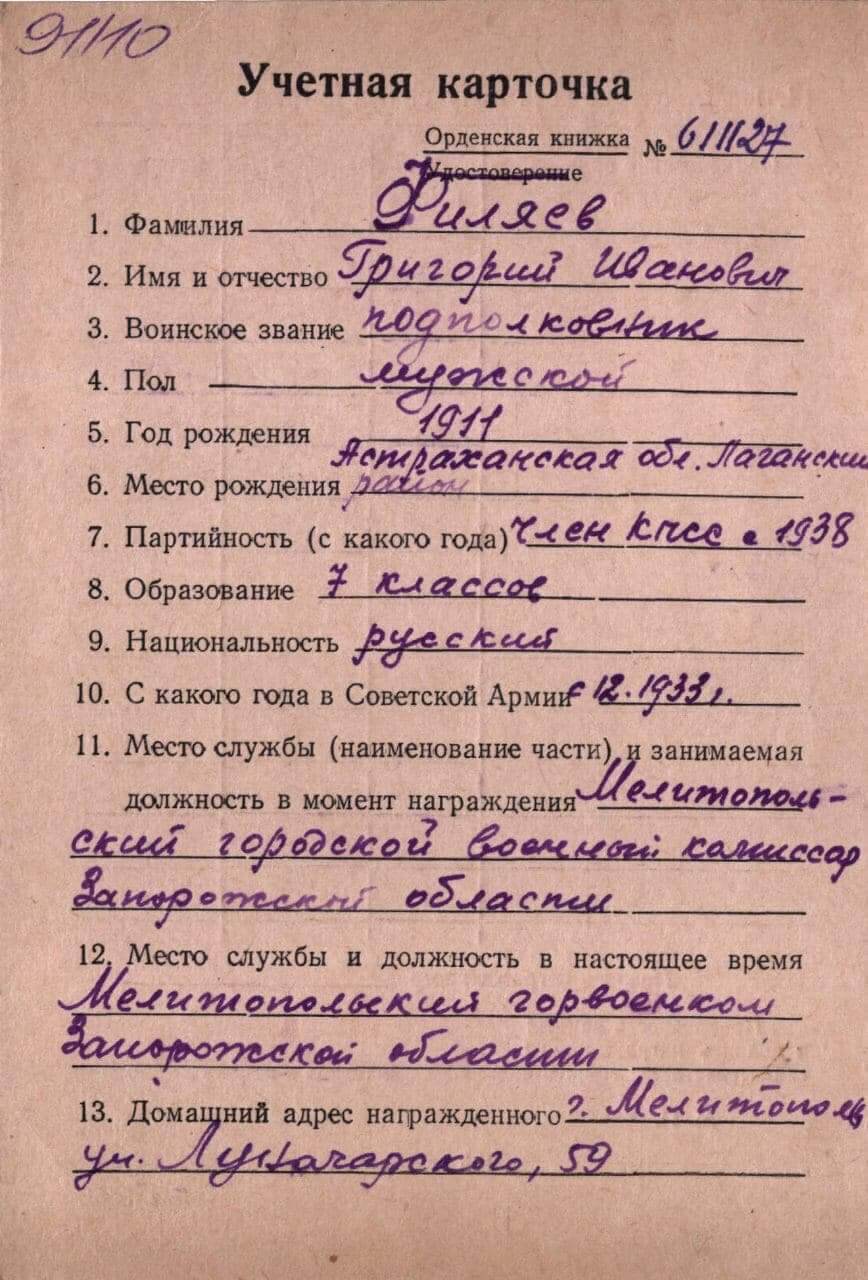 91/10
Учетная карточка
Орденская книжка № 611127
Удостоверение
1. Фамилия Филяев
2. Имя и отчество Григорий Иванович
3. Воинское звание подполковник
4. Пол мужской
5. Год рождения 1911
Астраханская обл. Лаганский
6. Место рождения район
7. Партийность (с какого года) Член КПСС с 1938
8. Образование 7 классов
9. Национальность русский
10. С какого года в Советской Армии с 12.1933 г.
11. Место службы (наименование части) и занимаемая
должность в момент награждения Мелитополь-
ский городской военный комиссар
Запорожской области
12. Место службы и должность в настоящее время
Мелитопольский горвоенком
Запорожской области
13. Домашний адрес награжденного г. Мелитополь
ул. Луначарского, 59